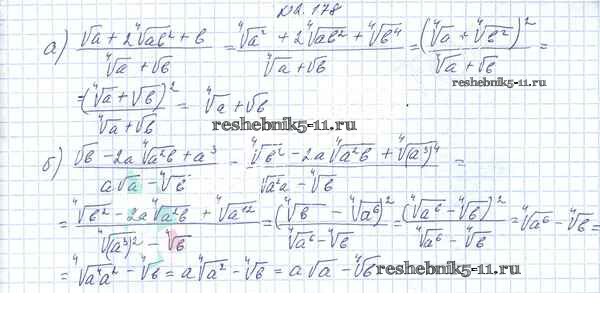 № 2.178
а) (√a + 2⁴√(ab²) + b)/(⁴√a + √b) = (⁴√a² + 2⁴√(ab²) + ⁴√b⁴)/(⁴√a + √b) = (⁴√a + ⁴√b²)²/(⁴√a + √b) =
= (⁴√a + √b)²/(⁴√a + √b) = ⁴√a + √b
reshebnik5-11.ru
б) (√b - 2a⁴√(a²b) + a³)/(a√a - ⁴√b) - (⁴√b² - 2a⁴√(a²b) + ⁴√(a³)⁴)/(√(a²a) - ⁴√b) =
= (⁴√b² - 2a⁴√(a²b) + ⁴√a¹²)/(⁴√(a³)² - ⁴√b) = (⁴√b - ⁴√a⁶)²/(⁴√a⁶ - ⁴√b) = (⁴√a⁶ - ⁴√b)²/(⁴√a⁶ - ⁴√b) = ⁴√a⁶ - ⁴√b =
= ⁴√(a⁴a²) - ⁴√b = a⁴√a² - ⁴√b = a√a - ⁴√b
reshebnik5-11.ru